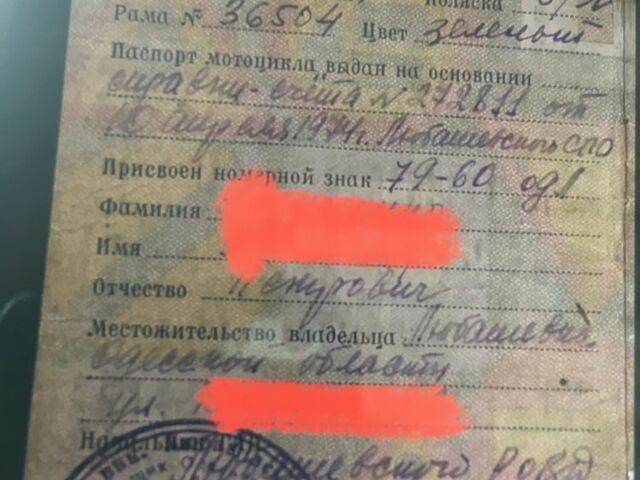 Коляска б/к
Рама № 36504 Цвет зеленый
Паспорт мотоцикла выдан на основании
справки-счёта №272811 от
10 апреля 1974г. Любашевского СПО
Присвоен номерной знак 79-60 одл
Фамилия
Имя
Отчество
Местожительство владельца Любашевка,
Одесской области
ул.
Начальник ГАИ
Любашевского РОВД